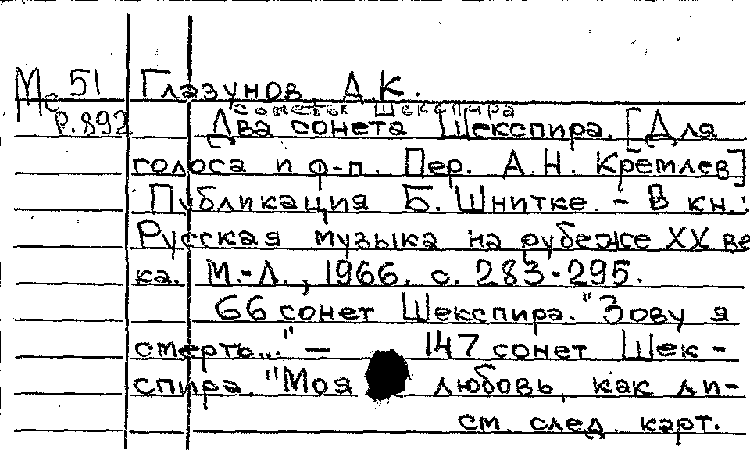 Мс 51 Глазунов А.К.
сонеты Шекспира
Р.892 Два сонета Шекспира. [Для
голоса и ф-п. Пер. А.Н. Кремлев]
Публикация Б. Шнитке. - В кн.:
Русская музыка на рубеже XX ве
ка. М.-Л., 1966. с. 283-295.
66 сонет Шекспира. "Зову я
смерть..." — 147 сонет Шек-
спира. "Моя любовь, как ли-
см. след карт.